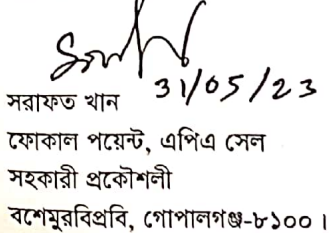 31/05/23
সরাফত খান
ফোকাল পয়েন্ট, এপিএ সেল
সহকারী প্রকৌশলী
বশেমুরবিপ্রবি, গোপালগঞ্জ-৮১০০।